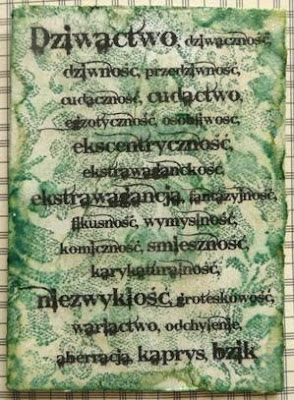 Dziwactwo, dziwaczność,
dziwność, przedziwność,
cudaczność, cudactwo,
egzotyczność, osobliwość,
ekscentryczność,
ekstrawaganckość,
ekstrawagancja, fantazyjność,
fikuśność, wymyślność,
komiczność, śmieszność,
karykaturalność,
niezwykłość, groteskowość,
wariactwo, odchylenie,
aberracja, kaprys, bzik